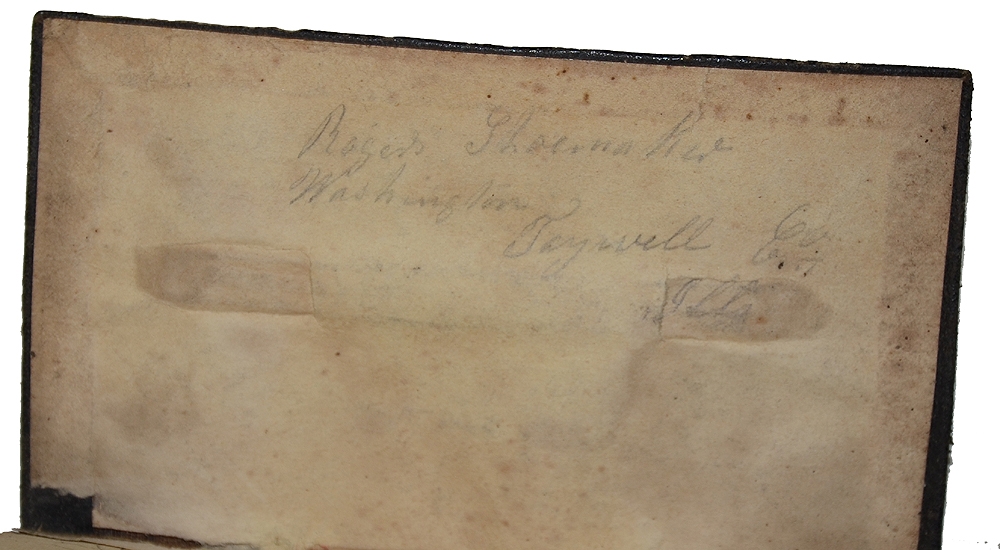 Rogers Shoemaker
Washington
Tazwell Co
Ills